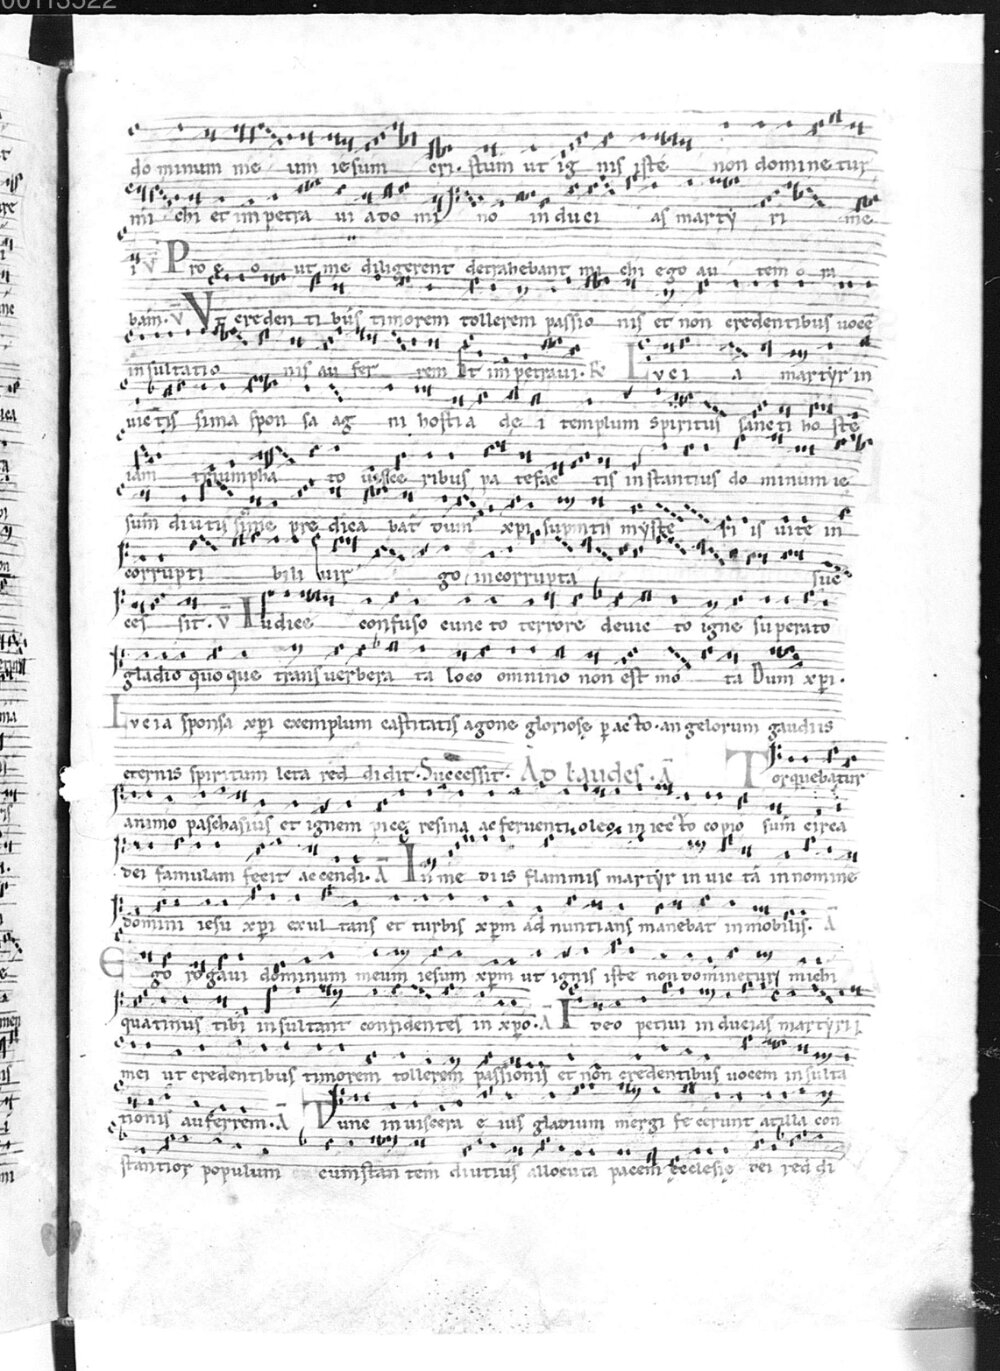 00113522
do minum me um iesum cri. stum ut ig nis iste non domine tur
mi chi et impetra ui a do mi no in duci as marty ri me
i v̄ Pro e o ut me diligerent detrahebant mi chi ego au tem o ra
bam. v̄ Vt creden ti bus timorem tollerem passio nis et non credentibus uocē
insultatio nis au fer rem Et impetraui. R Luci a martyr in
uictis sima spon sa ag ni hostia de i templum spiritus sancti ho ste
iam triumpha to uisce ribus pa tefac tis instantius do minum ie
sum diutissime pre dica bat dum xp̄i supintis myste ri is uite in
corrupti bili uir go incorrupta suc
ces sit. v̄ Iudice confuso cunc to terrore deuic to igne superato
gladio quoque transuerbera ta loco omnino non est mo ta Dum xp̄i.
Lucia sponsa xp̄i exemplum castitatis agone gloriose ꝑacto. angelorum gaudiis
eternis spiritum leta red didit. Successit. Ad laudes. Ā Torquebatur
animo paschasius et ignem pice resina ac feruenti oleo in iecto copio sum circa
dei famulam fecit accendi. Ā In me diis flammis martyr in uic ta in nomine
domini iesu xp̄i exul tans et turbis xp̄m ad nuntians manebat inmobilis. Ā
Ego rogaui dominum meum iesum xp̄m ut ignis iste non dominetur michi
quatinus tibi insultant confidentes in xp̄o. Ā Ideo petiui inducias martyrii
mei ut credentibus timorem tollerem passionis et non credentibus uocem insulta
tionis auferrem. Ā Tunc in uiscera e ius gladium mergi fecerunt at illa con
stantior populum cumstan tem diutius allocuta pacem ecclesie dei red di